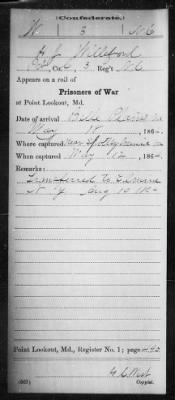 (Confederate.)
W 3 N.C.
H J Williford
Co. , 3 Reg't N.C.
Appears on a roll of
Prisoners of War
at Point Lookout, Md.
Date of arrival Belle Plain
May 18, 186
Where captured Near Spottsylvania
When captured May 12, 1864
Remarks:
Transferred to Elmira
N. Y. Aug 10 1864
Point Lookout, Md., Register No. 1; page
Copyist.